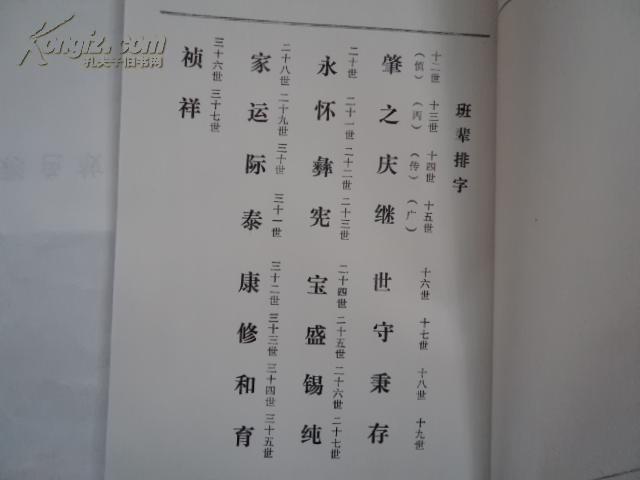 班辈排字
十二世 十三世 十四世 十五世 十六世 十七世 十八世 十九世
（慎） （丙） （传） （广）
肇之庆继 世守秉存
二十世 二十一世 二十二世 二十三世 二十四世 二十五世 二十六世 二十七世
永怀彝宪 宝盛锡纯
二十八世 二十九世 三十世 三十一世 三十二世 三十三世 三十四世 三十五世
家运际泰 康修和育
三十六世 三十七世
祯祥
Kongfz.com
孔夫子旧书网